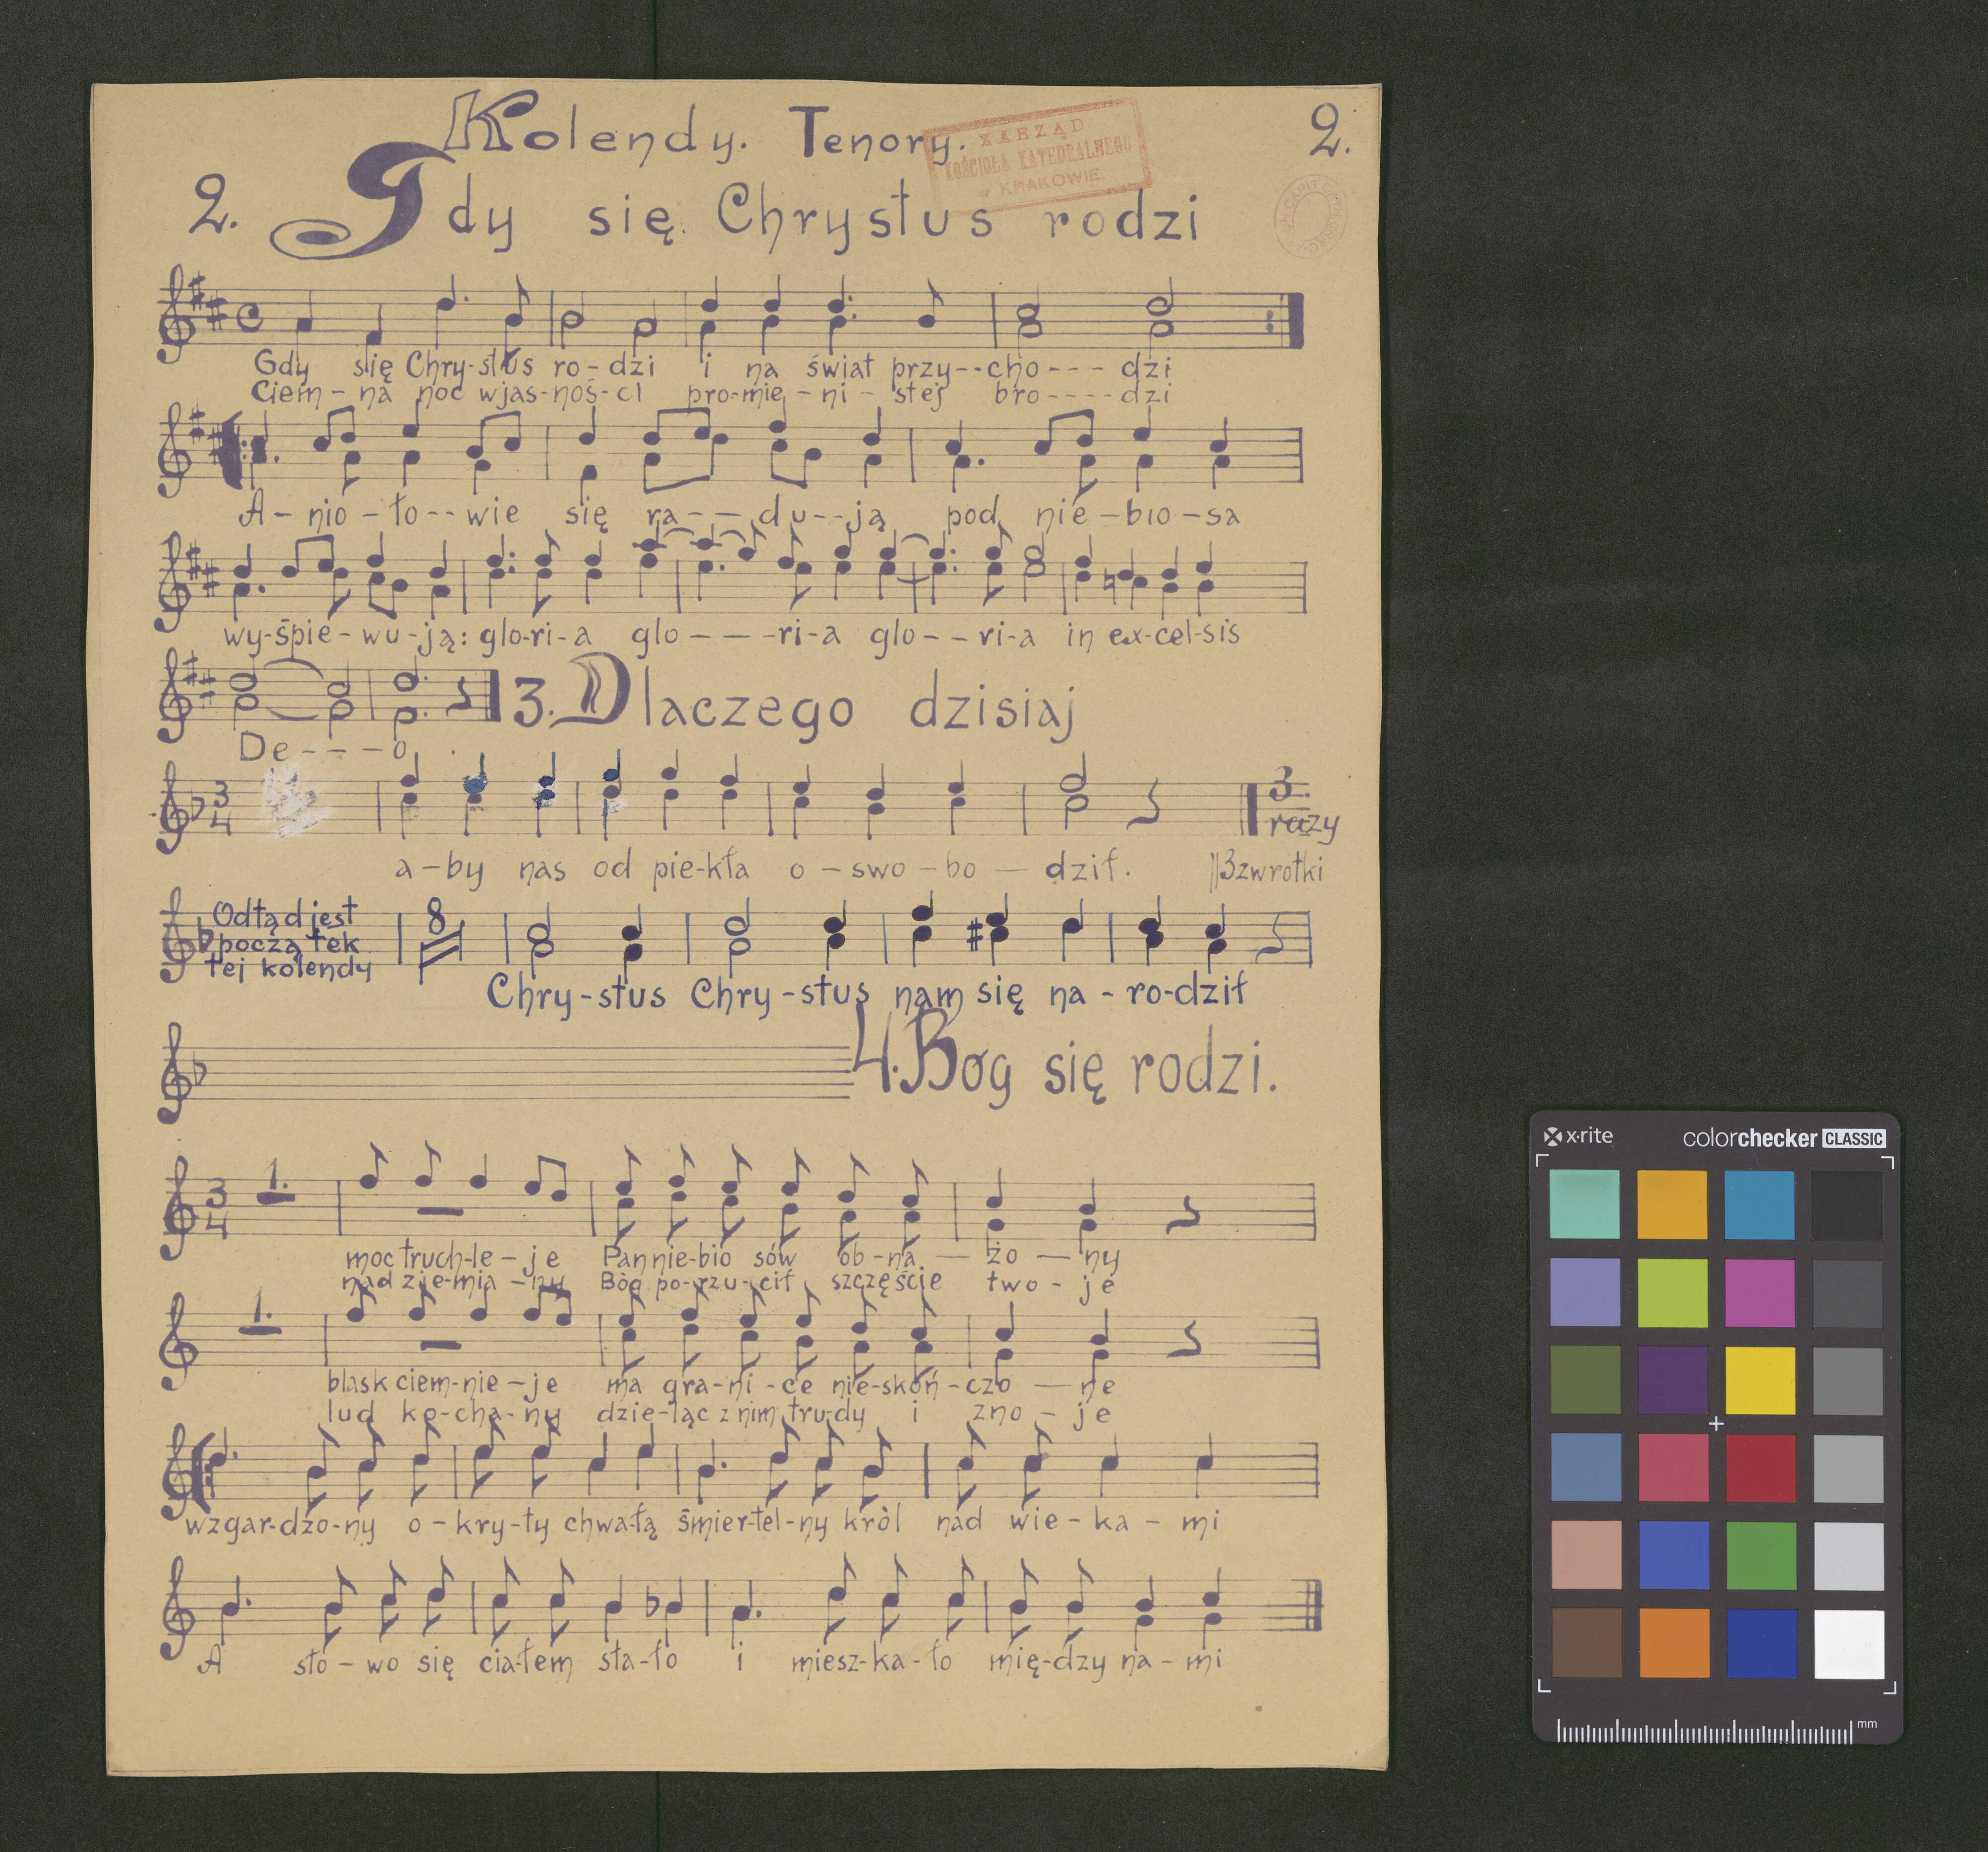 Kolendy. Tenory.
2.
ZARZĄD
KOŚCIOŁA KATEDRALNEGO
w KRAKOWIE.
2. Gdy się Chrystus rodzi
Gdy się Chry-stus ro-dzi i na świat przy--cho--- dzi
Ciem-na noc wjas-noś-ci pro-mie-ni-stej bro----dzi
A-nio-ło--wie się ra---du--ją pod nie-bio-sa
wy-śpie-wu-ją: glo-ri-a glo----ri-a glo--ri-a in ex-cel-sis
De----o
3. Dlaczego dzisiaj
3
4
3.
razy
a-by nas od pie-kła o-swo-bo-dził.
3zwrotki
Odtąd jest
począ tek
tej kolendy
8
Chry-stus Chry-stus nam się na-ro-dził
4. Bóg się rodzi.
3
4
1.
moc truch-le-je Pan nie-bio sów ob-na - żo - ny
nad zie-mia-ny Bòg po-rzu-cił szczęście two-je
1.
blask ciem-nie-je ma gra-ni-ce nie-skoń-czo-ne
lud ko-cha-ny dzie-ląc z nim tru-dy i zno-je
wzgar-dzo-ny o-kry-ty chwa-łą śmier-tel-ny kròl nad wie-ka-mi
A sło-wo się cia-łem sta-ło i miesz-ka-ło mię-dzy na-mi
x·rite
colorchecker CLASSIC
mm